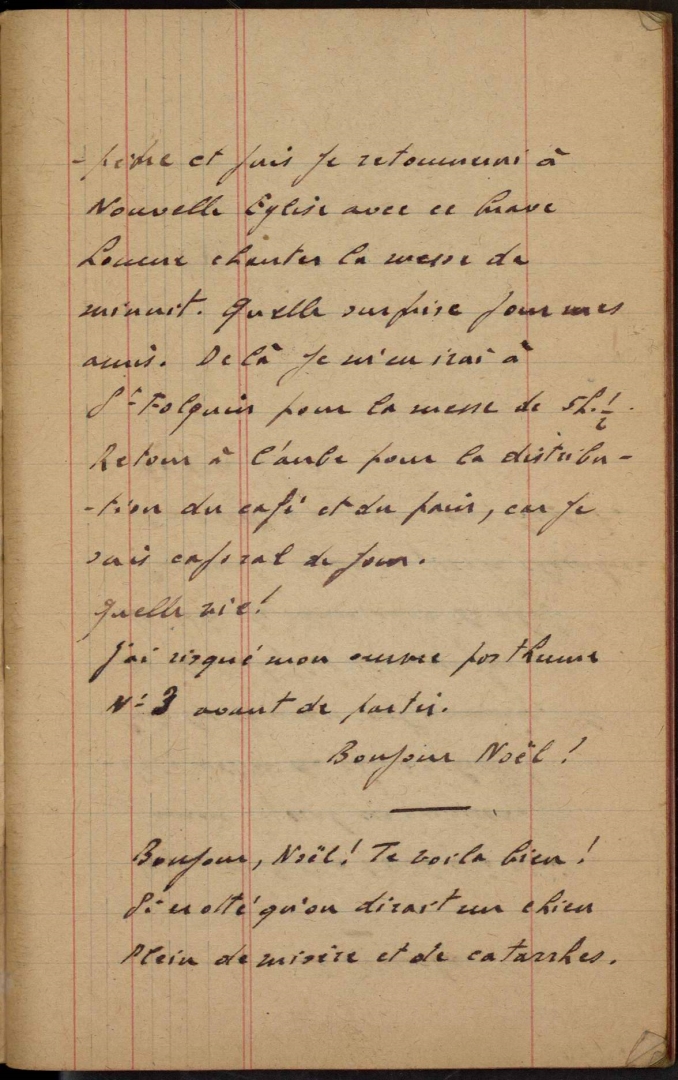 -pître et puis je retournerai à
Nouvelle Eglise avec ce brave
chanter la messe de
minuit. Quelle surprise pour mes
amis. De là je m'en irai à
St-Folquin pour la messe de 5h.½.
Retour à l'aube pour la distribu-
-tion du café et du pain, car je
suis caporal de jour.
Quelle vie!
J'ai risqué mon œuvre posthume
No 3 avant de partir.
Bonjour Noël!
Bonjour, Noël! Te voila bien!
Si crotté qu'on dirait un chien
Plein de misère et de catarrhes.